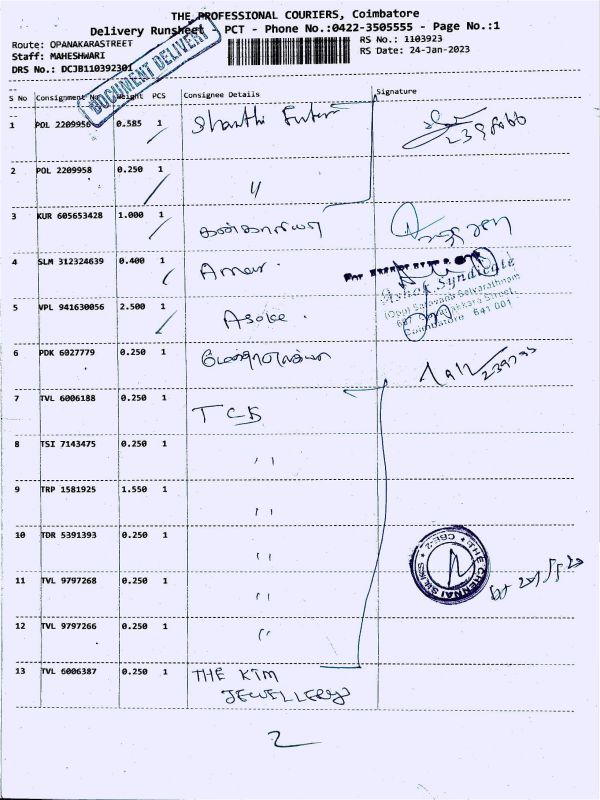 THE PROFESSIONAL COURIERS, Coimbatore
Delivery Runsheet PCT - Phone No.:0422-3505555 - Page No.:1
Route: OPANAKARASTREET RS No.: 1103923
Staff: MAHESHWARI RS Date: 24-Jan-2023
DRS No.: DCJB110392301
DOCUMENT DELIVERY
S No Consignment No Weight PCS Consignee Details Signature
1 PDL 2209956 0.585 1 Shanthi
2 POL 2209958 0.250 1 〃
3 KUR 605653428 1.000 1
4 SLM 312324639 0.400 1
Ashok Syndicate
(Opp) Saravana Selvarathnam
Coimbatore 641 001
5 VPL 941630056 2.500 1 Asoke.
6 PDK 6027779 0.250 1
7 TVL 6006188 0.250 1 TCS
8 TSI 7143475 0.250 1 〃
9 TRP 1581925 1.550 1 〃
10 TDR 5391393 0.250 1 〃
THE CHENNAI SILKS
11 TVL 9797268 0.250 1 〃
12 TVL 9797266 0.250 1 〃
13 TVL 6006387 0.250 1 THE KTM
JEWELLERY
2